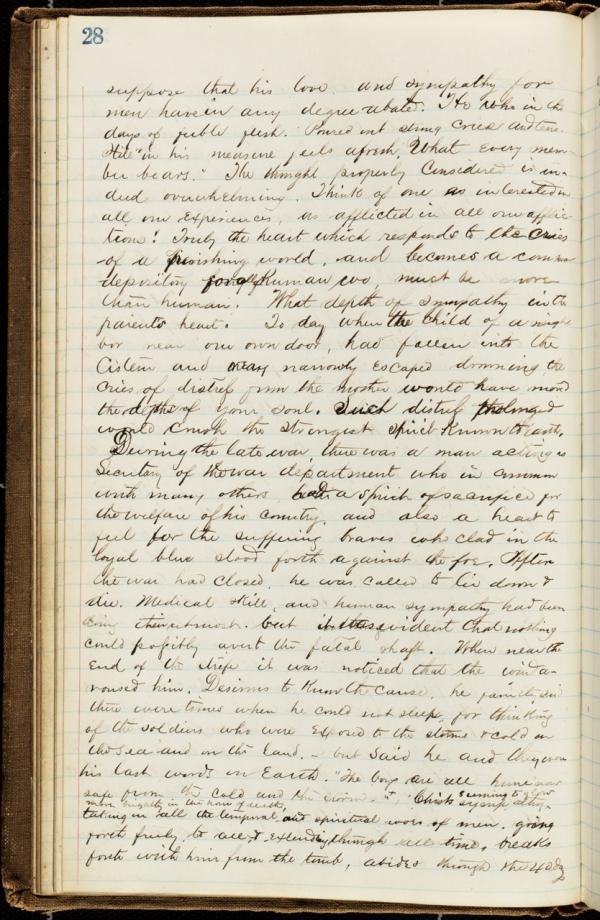 28
suppose that his love, and sympathy for
men have in any degree abated. "He who in the
days of feeble flesh. Poured out strong cries and tears.
Still in his measure feels afresh, What every mem-
ber bears." The thought properly Considered is in-
deed overwhelming. Think of one as interested in
all our experiences, as afflicted in all our afflic-
tions! Truly the heart which responds to the cries
of a perishing world, and becomes a common
depository for all human woe, must be more
than human. What depth of Sympathy in the
parents heart. To day when the child of a neigh-
bor near our own door, had fallen into the
Cistern and narrowly escaped drowning the
cries of distress from the mother would have moved
the depths of your soul. Such distress prolonged
would crush the strongest spirit known to earth.
During the late war, there was a man acting as
Secretary of the war department who in common
with many others had a spirit of sacrifice for
the welfare of his country, and also a heart to
feel for the suffering braves who clad in the
loyal blue stood forth against the foe. After
the war had closed, he was called to lie down &
die. Medical skill, and human sympathy had been
doing their utmost. but it was evident that nothing
could possibly avert the fatal shaft. When near the
End of the strife it was noticed that the wind a-
roused him. Desirous to know the cause, he faintly said
there were times when he could not sleep, for thinking
of the soldiers who were exposed to the storms & cold on
the sea and on the land. - but said he and they were
his last words on Earth. "The boys are all home now
safe from the cold and the storm." Christs sympathy
seeming to glow
more brightly in the hour of death,
taking in all the temporal, and spiritual woes of men. going
forth freely to all & extending through all time. breaks
forth with him from the tomb, abides through the 40 days